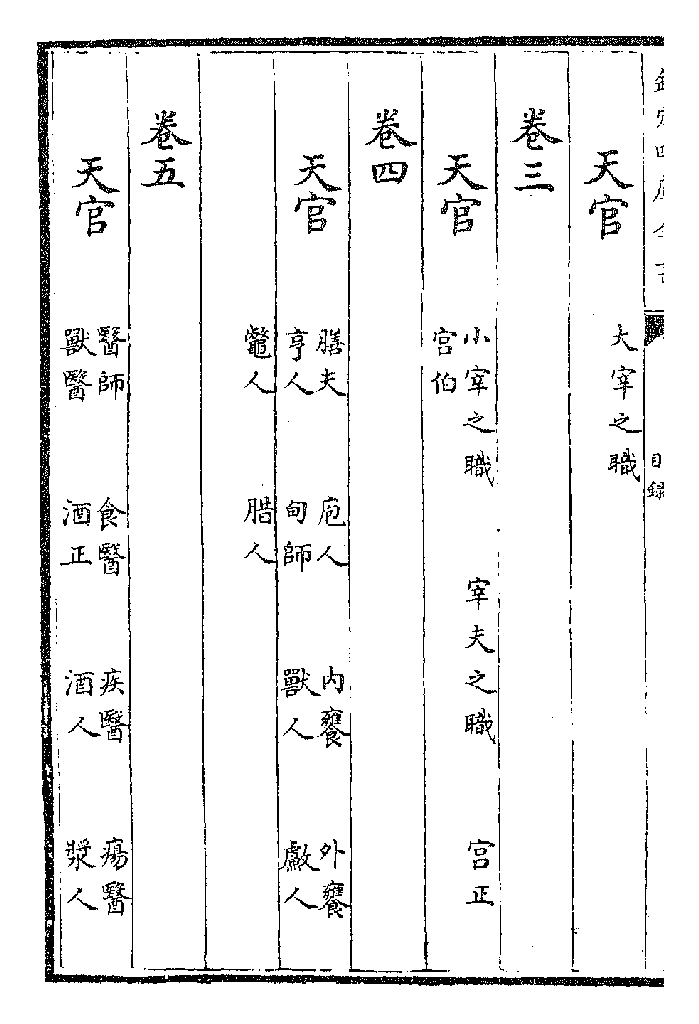 欽定四庫全書
目錄
天官
大宰之職
卷三
天官
小宰之職 宰夫之職 宫正
宫伯
卷四
天官
膳夫 庖人 内饔 外饔
亨人 甸師 獸人 䱷人
鼈人 腊人
卷五
天官
醫師 食醫 疾醫 瘍醫
獸醫 酒正 酒人 漿人